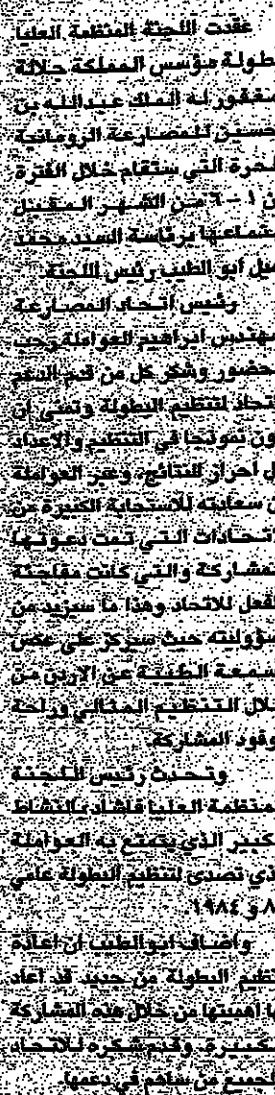 عقدت اللجنة المنظمة العليا
طولة مؤسس المملكة جلالة
مغفور له الملك عبدالله بن
حسين للمصارعة الرومانية
لحرة التي ستقام خلال الفترة
ن ١ - ٦ من الشهر المقبل
جتماعها برئاسة السيد محمد
ميل ابو الطيب رئيس اللجنة.
رئيس اتحاد المصارعة
مهندس ابراهيم العواملة رحب
لحضور وشكر كل من قدم الدعم
تحاد لتنظيم البطولة وتمنى ان
ون نموذجا في التنظيم والاعداد
ل احراز النتائج، وعبر العواملة
ن سعادته للاستجابة الكبيرة من
اتحادات التي تمت دعوتها
لمشاركة والتي كانت مفاجئة
الفعل للاتحاد وهذا ما سيزيد من
سؤوليته حيث سيركز على عكس
سمعة الطيبة عن الاردن من
لال التنظيم المثالي وراحة
وفود المشاركة.
وتحدث رئيس اللجنة
منظمة العليا فاشاد بالنشاط
كبير الذي يتمتع به العواملة
ذي تصدى لتنظيم البطولة عامي
٨ و ١٩٨٤.
واضاف ابو الطيب ان اعادة
نظيم البطولة من جديد قد اعاد
ها اهميتها من خلال هذه المشاركة
كبيرة. وقدم شكره للاتحاد
لجميع من ساهم في دعمها